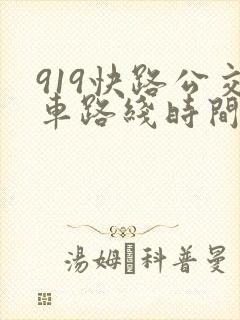 919快路公交
車路綫時間
湯姆·科普曼